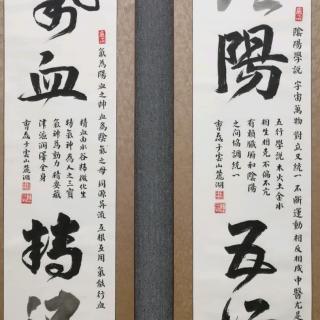 陽五
陰陽學說 宇宙萬物 對立又統一 不斷運動 相反相成 中醫尤是
五行學說木火土金水
相生相克不偏不亢
有賴臟腑和陰陽
之間協調統一
曹磊于雲山麓湖
氣血精
氣為陽血之帥 血為陰氣之母 同源異流 互根互用 氣能行血
精血由水谷精微化生
精氣神為人之三寶
氣神為動力 精要藏
津液潤澤全身
曹磊于雲山麓湖